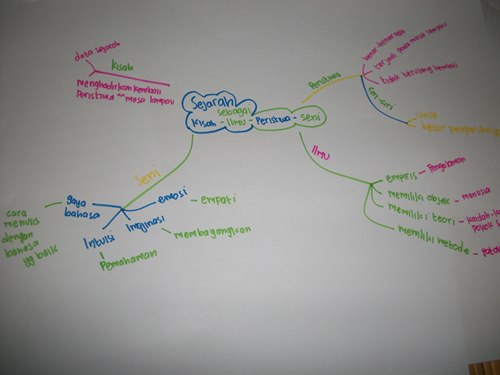 data sejarah
Kisah
menghadirkan kembali
Peristiwa ^^ masa lampau
Sejarah
sebagai
Kisah - Ilmu - Peristiwa - seni
Peristiwa
benar-benar ada
terjadi pada masa lampau
tidak berulang kembali
Ciri-ciri
unik
besar pengaruhnya
Seni
gaya
bahasa
cara
menulis
dengan
bahasa
yg baik
Intuisi
Pemahaman
Imginasi
membayangkan
emosi
empati
Ilmu
empiris - Pengalaman
memiliki objek - manusia
memiliki teori - kaidah-
Pokok
memiliki metode -